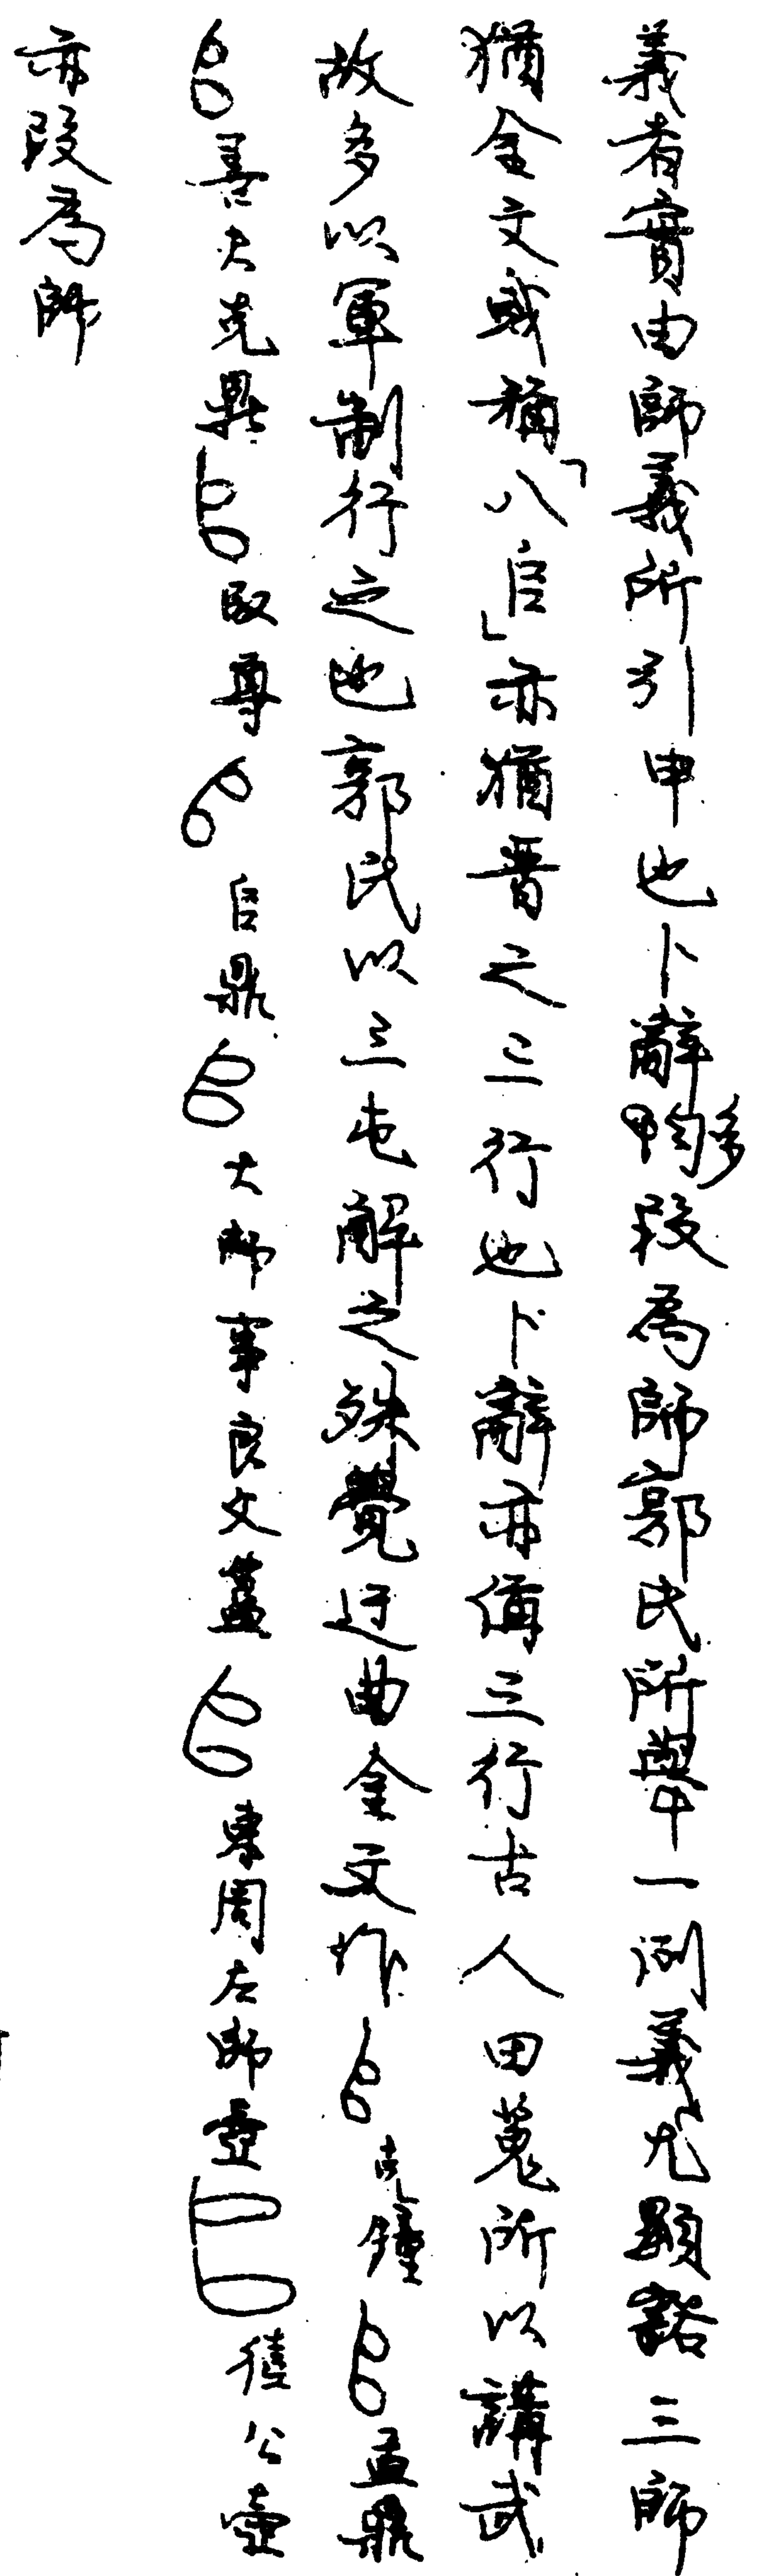 義者實由師義所引申也卜辭𠂤多叚為師郭氏所舉一例義尤顯豁三師
猶金文或稱「八𠂤」亦猶晋之三行也卜辭亦偁三行古人田蒐所以講武
故多以軍制行之也郭氏以三屯解之殊覺迂曲金文作𠂤克鐘𠂤盂鼎
𠂤善夫克鼎𠂤尊𠂤𠂤鼎𠂤大師事良父簋𠂤東周左師壺𠂤公壺
亦叚為師